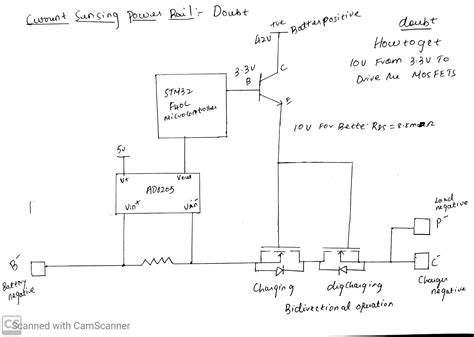 Current Sensing Power Rail:- Doubt
+ve Batterpositive
42V
doubt
How to get
10V From 3.3V To
Drive the MOSFETS
3.3V
B
C
E
STM32
F40L
Microcontroller
10V For Better RDS = 8.8mΩ
5V
V+ Vout
AD8205
Vin+ Vin-
Load
negative
P-
B-
Battery
negative
C-
Charger
negative
Charging
discharging
Bidirectional operation
CS
Scanned with CamScanner